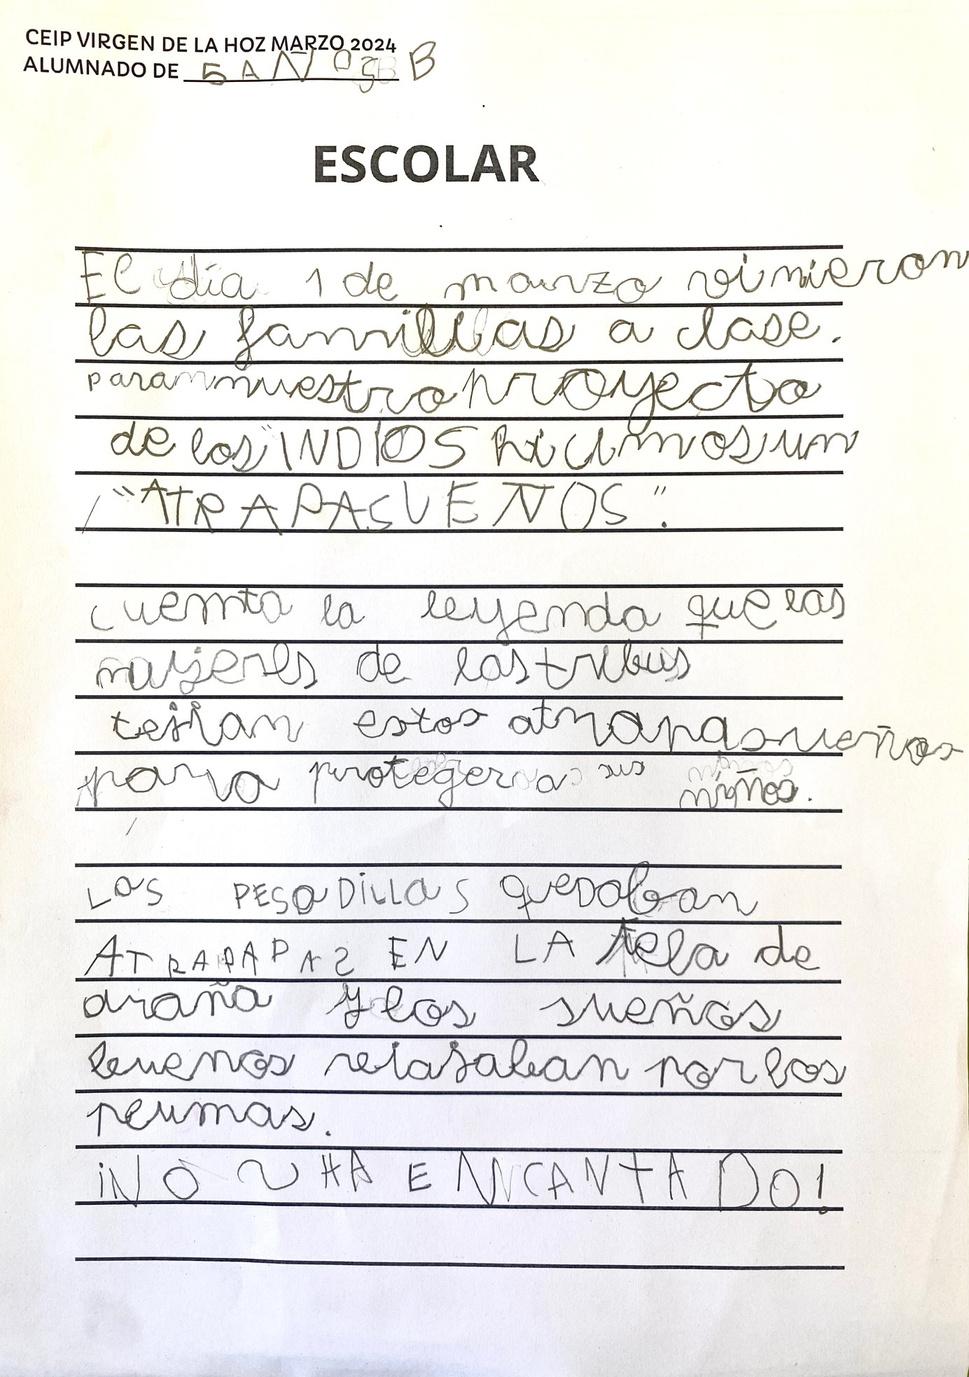 CEIP VIRGEN DE LA HOZ MARZO 2024
ALUMNADO DE 5 AÑOS B
ESCOLAR
El día 1 de marzo vinieron
las famillias a clase.
para nuestro proyecto
de los "INDIOS hicimos un
"ATRAPASUEÑOS".
cuenta la leyenda que las
mujeres de las tribus
tejían estos atrapasueños
para proteger a sus niños.
LAS PESADILLAS quedaban
ATRAPAPAS EN LA tela de
araña y los sueños
buenos relasaban por los
plumas.
¡NO S HA ENCANTADO!